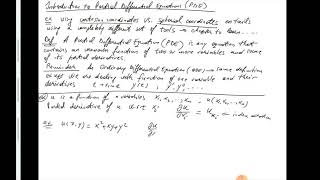 Introduction to Partial Differential Equations (PDE)
ex using cartesian coordinates vs. spherical coordinates entails
using a completely different set of tools - chapter to learn
Def. A Partial Differential Equation (PDE) is any equation that
contains an unknown function of two or more variables and some
of its partial derivatives.
Reminder: An Ordinary Differential Equation (ODE) - same definition
except we are dealing with function of one variable and their
derivatives t = time y(t), y', y''....
u is a function of n variables x₁, x₂, ..., xₙ, u(x₁, x₂, ..., xₙ)
Partial derivative of u w.r.t xᵢ ∂u/∂xᵢ = u_xᵢ index notation
ex. u(x,y) = x² + xy + y² ∂u